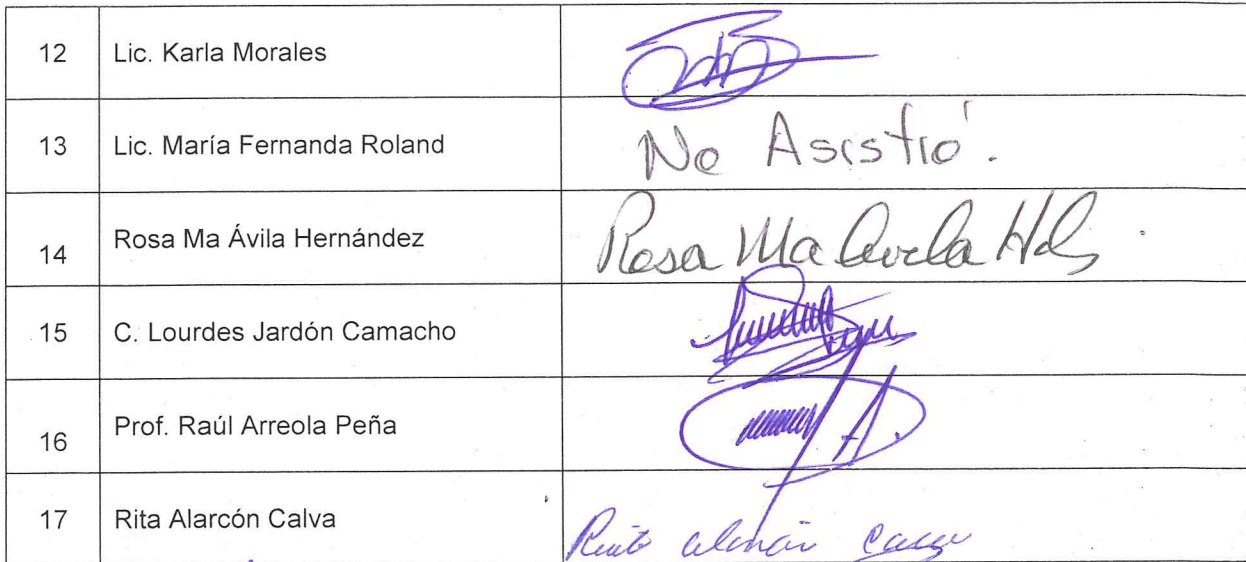 12 Lic. Karla Morales
13 Lic. María Fernanda Roland No Asistió.
14 Rosa Ma Ávila Hernández Rosa Ma Avila Hdz
15 C. Lourdes Jardón Camacho
16 Prof. Raúl Arreola Peña
17 Rita Alarcón Calva